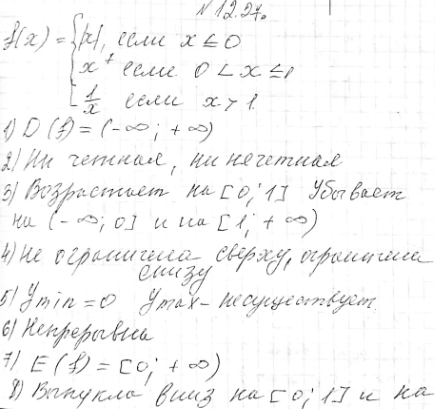 N 12.27.
f(x) = { |x|, если x ≤ 0
x⁷ если 0 < x ≤ 1
1/x если x > 1
1) D (f) = (-∞; +∞)
2) Ни четная, ни нечетная
3) Возрастает на [0; 1] Убывает
на (-∞; 0] и на [1; +∞)
4) Не ограничена сверху, ограничена
снизу
5) Ymin = 0 Ymax - несуществует
6) Непрерывна
7) E (f) = [0; +∞)
8) Выпукла вниз на [0; 1] и на